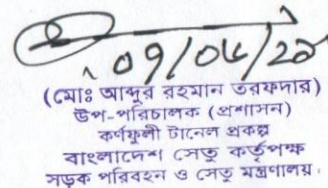 ০৭/০৮/২১
(মোঃ আব্দুর রহমান তরফদার)
উপ-পরিচালক (প্রশাসন)
কর্ণফুলী টানেল প্রকল্প
বাংলাদেশ সেতু কর্তৃপক্ষ
সড়ক পরিবহন ও সেতু মন্ত্রণালয়।